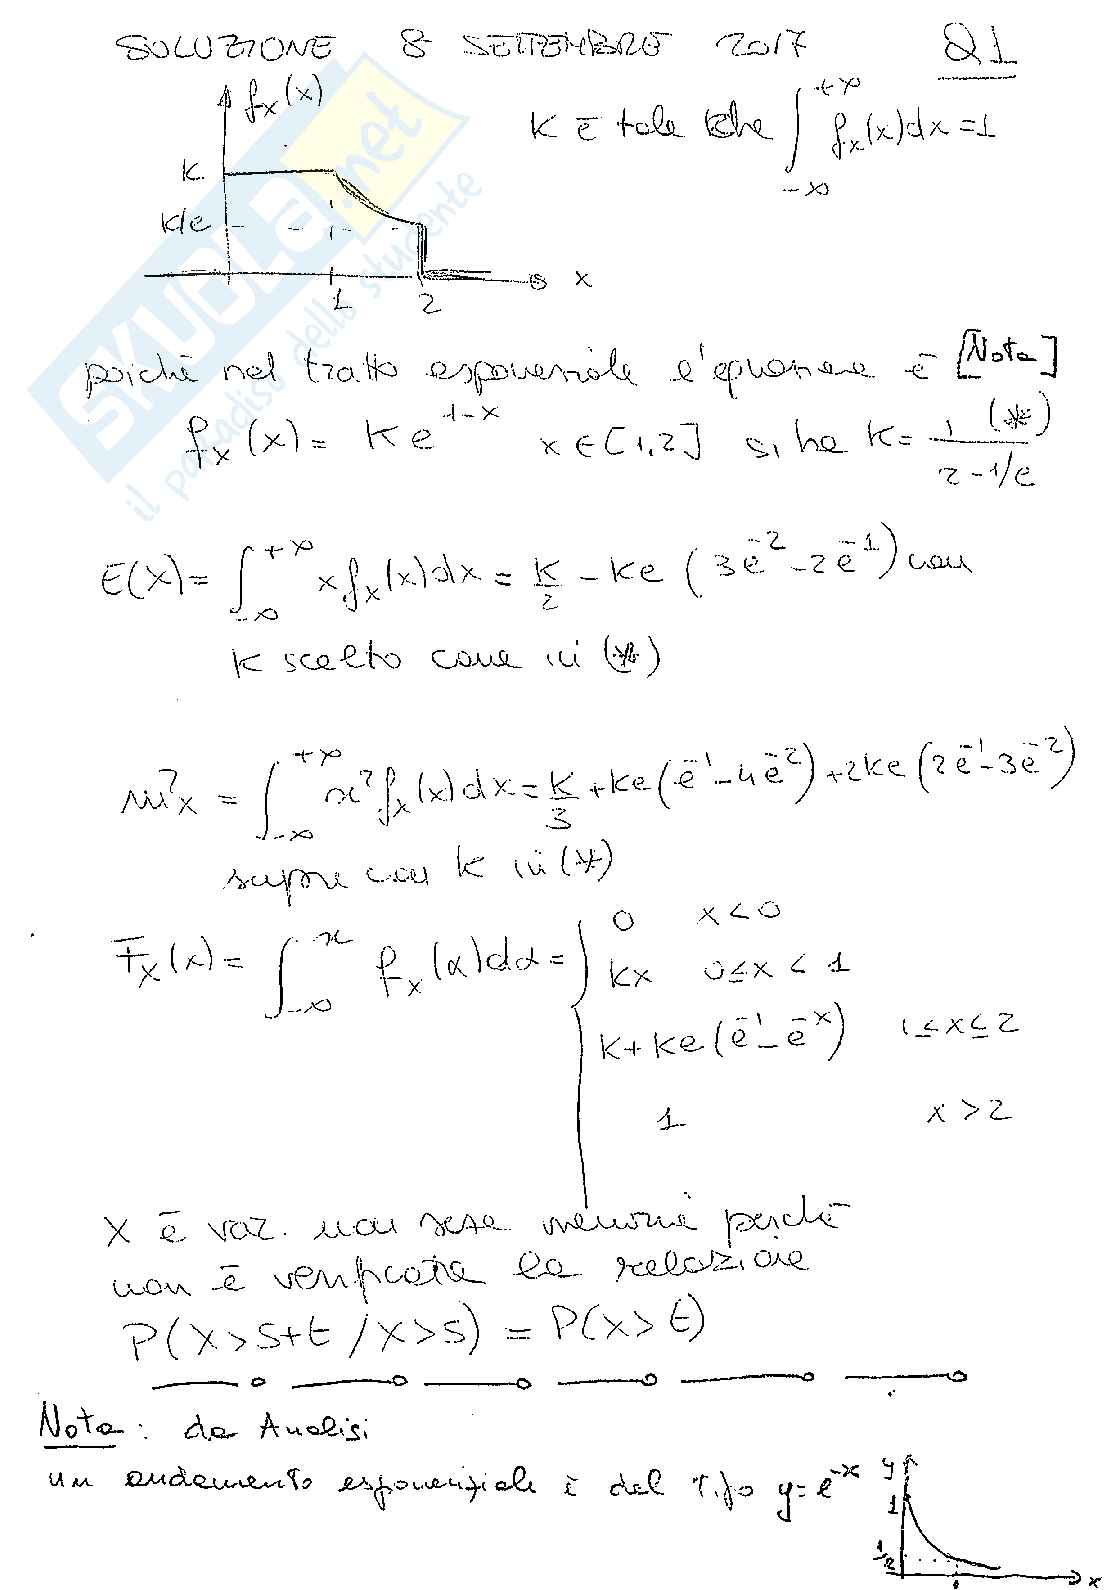 SOLUZIONE 8 SETTEMBRE 2017 Q1
fx(x)
K è tale che ∫_{-∞}^{+∞} fx(x)dx=1
K
K/e
1 2 x
SKUOLA.net
il paradiso dello studente
poiché nel tratto esponenziale l'equazione è [Nota]
fx(x) = Ke^{1-x} x∈[1,2] si ha K = 1/(2-1/e) (*)
E(X) = ∫_{-∞}^{+∞} x fx(x)dx = K/2 - Ke (3e^{-2} - 2e^{-1}) con
K scelto come in (*)
m²x = ∫_{-∞}^{+∞} x² fx(x)dx = K/3 + Ke(e^{-1} - 4e^{-2}) + 2Ke(2e^{-1} - 3e^{-2})
sempre con K in (*)
Fx(x) = ∫_{-∞}^{x} fx(α)dα =
0 x<0
Kx 0≤x<1
K+Ke(e^{-1} - e^{-x}) 1≤x≤2
1 x>2
X è var. non senza memoria perché
non è verificata la relazione
P(X>s+t / X>s) = P(X>t)
Nota: da Analisi
un andamento esponenziale è del tipo y=e^{-x}
y
1
1/2
1 x